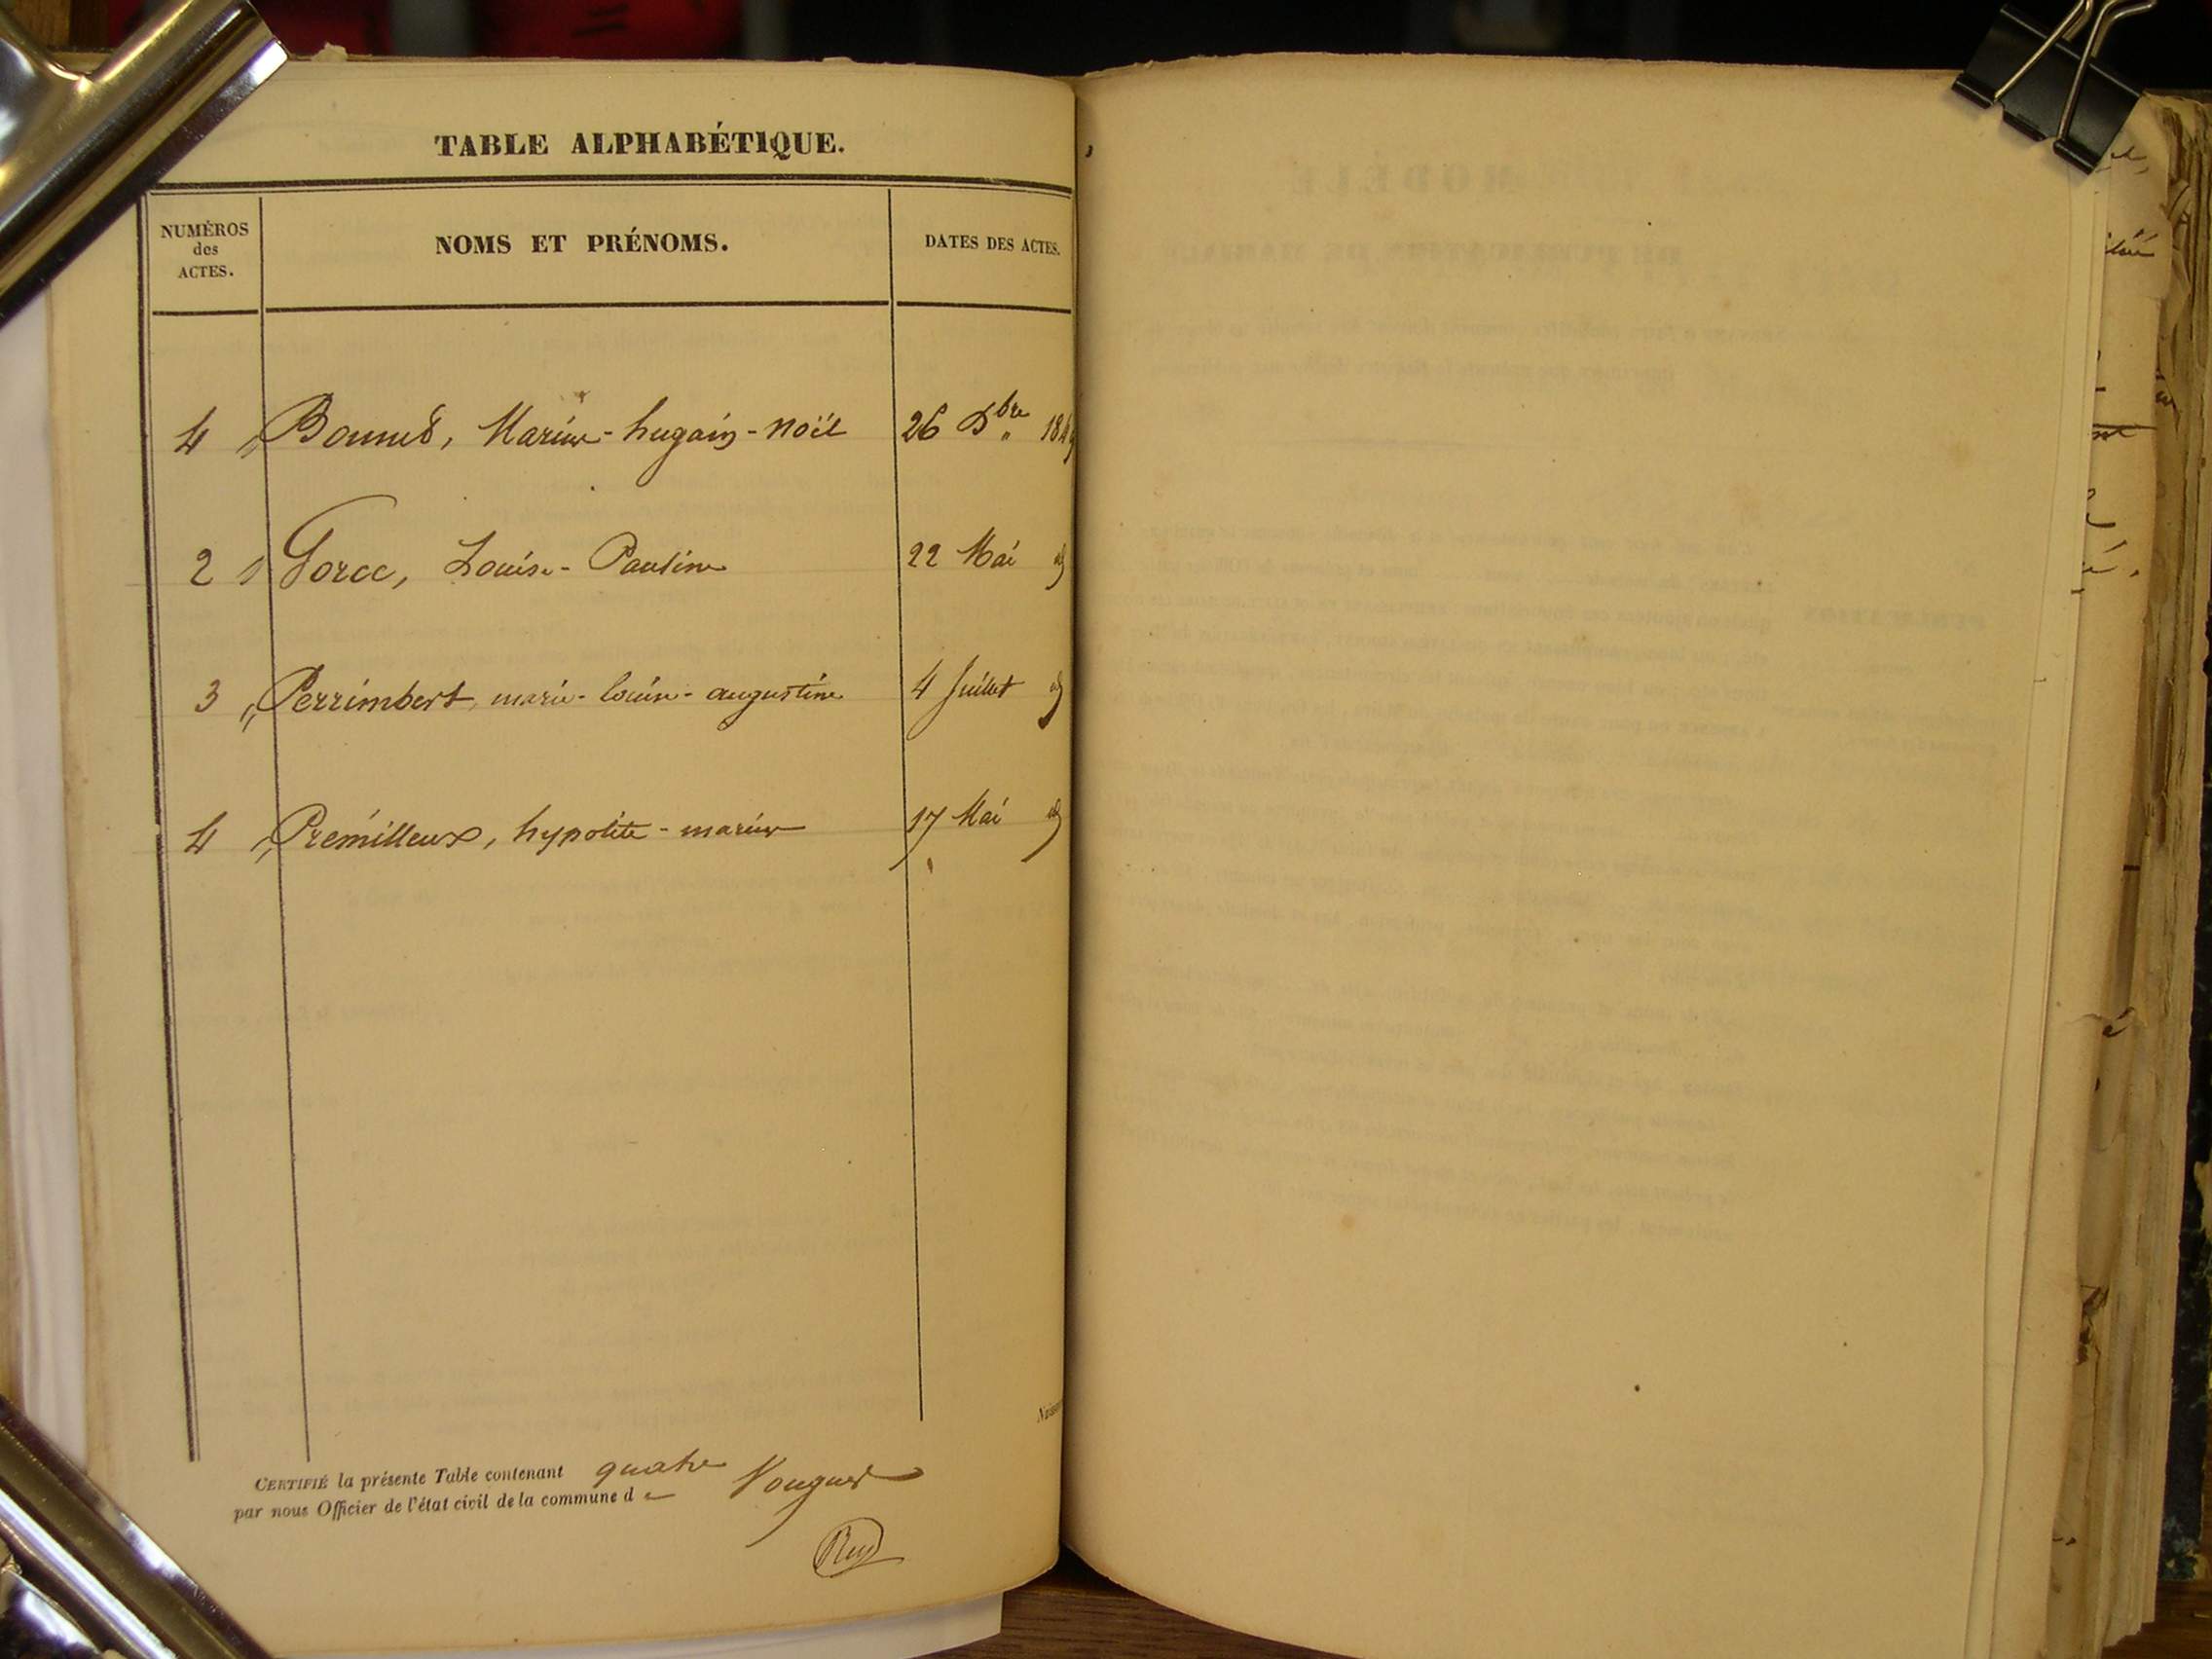 TABLE ALPHABÉTIQUE.
NUMÉROS
des
ACTES.
NOMS ET PRÉNOMS.
DATES DES ACTES.
4 Bonnet, Marius-hugain-Noël 26 Dbre 1849
2 Gorce, Louise-Pauline 22 Mai id
3 Perrimbert, marie-louise-augustine 4 Juillet id
4 Premilleux, hypolite-marius 17 Mai id
CERTIFIÉ la présente Table contenant quatre
par nous Officier de l'état civil de la commune de